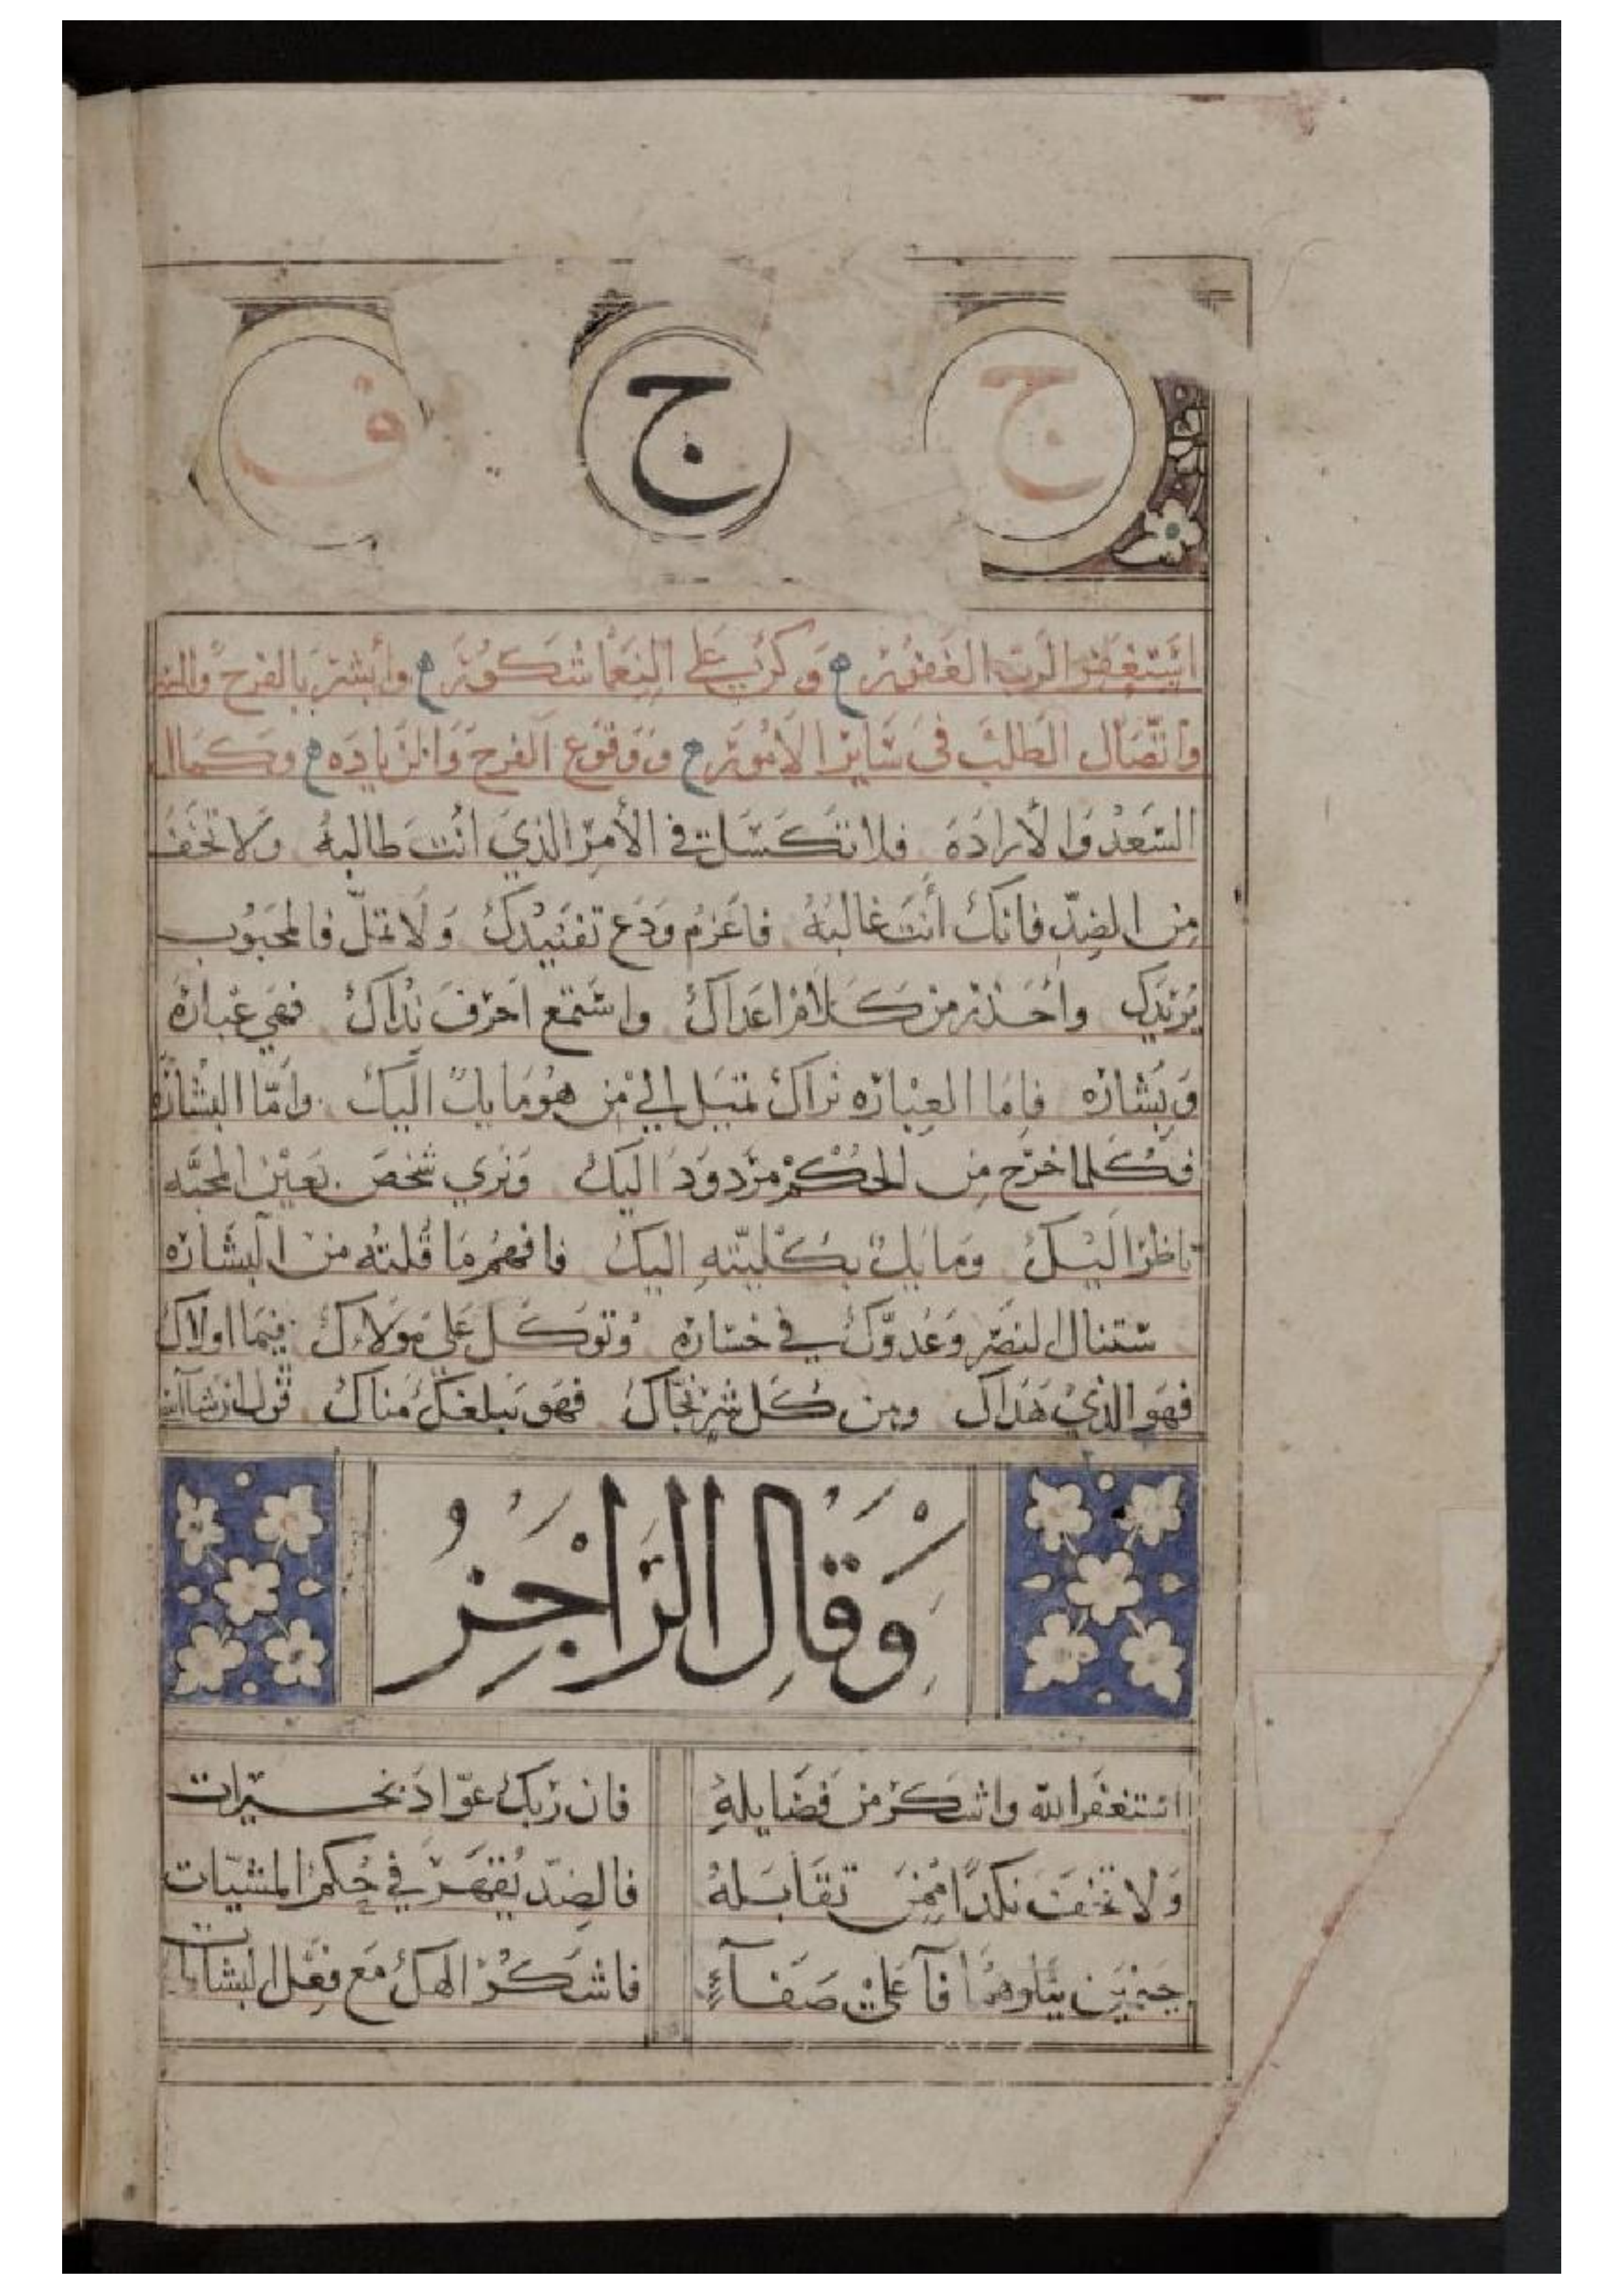 ج ج ف
استغفر الرب الغفور وكن على النعما شكور وأبشر بالفرح والسـ
واتصال الطلب في ساير الأمور ووقوع الفرح والزياده وكمال
السعد والاراده فلا تكسلن في الأمر الذي انت طالبه ولا تخف
من الضد فانك أنت غالبه فاعزم ودع تفنيدك ولا تمل فالمحبوب
يريدك واحذر من كلام اعداك واستمع احرف نداك فهي عباره
وبشاره فاما العباره نراك تميل الي من هو مايل اليك واما البشاره
فكلما خرج من الحكم مردود اليك ونري شخص بعين المحبه
ناظر اليك ومايل بكليته اليك فافهم ما قلته من البشاره
ستنال النصر وعدوك في خساره وتوكل علي مولاك فيما اولاك
فهو الذي هداك ومن كل شر نجاك فهو يبلغك مناك قول ان شا الله
وقال الراجز
استغفر الله واشكر من فضايله فان ربك عوّاد بخيرات
ولا تخف نكدا ممن تقابله فالضد يقهر في حكم المشيات
جيمين وهما فآ علي صفآء فاشكر الهك مع فعل البشارات